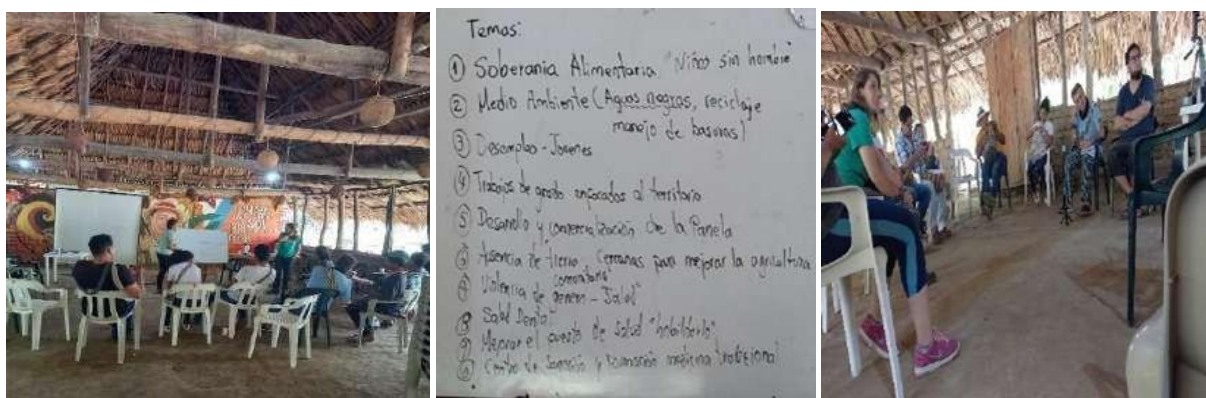 Temas:
① Soberania Alimentaria "Niños sin hambre"
② Medio Ambiente (Aguas negras, reciclaje
manejo de basuras)
③ Desempleo - Jovenes
④ Trabajos de grado enfocados al territorio
⑤ Desarrollo y comercialización de la Panela
⑥ Ausencia de tierra, cercanas para mejorar la agricultura
comunitaria
⑦ Violencia de genero - Salud
⑧ Salud
⑨ Mejorar el puesto de salud "habilitarlo"
⑩ Centro de sanación y formación medicina tradicional